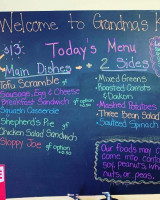 Welcome to Grandma's
Today's Menu
Main Dishes
Tofu Scramble
Sausage, Egg & Cheese
Breakfast Sandwich
Squash Casserole
Shepherd's Pie
Chicken Salad Sandwich
Sloppy Joe
2 Sides
Mixed Greens
Roasted Carrots
& Daikon
Mashed Potatoes
Three Bean Salad
Sautéed Spinach
Our foods may
come into conta
soy, peanuts, wh
nuts, or